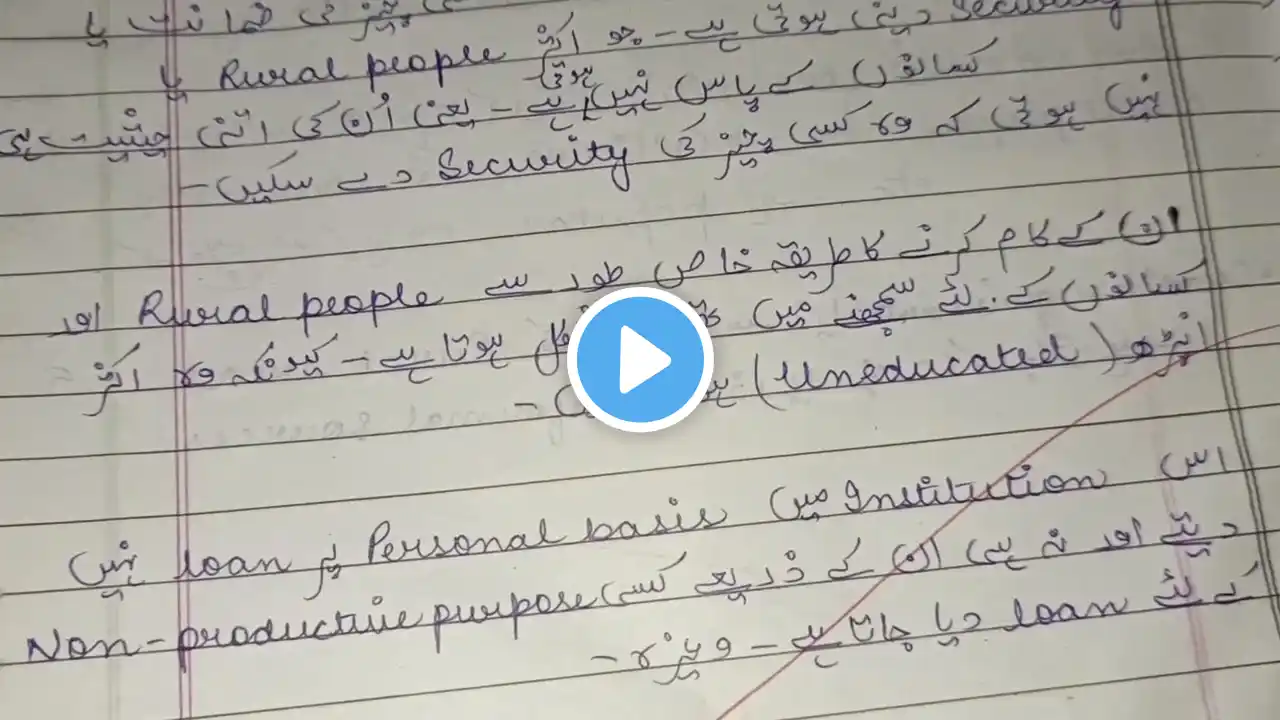 چیز کی ضمانت یا
Security دینی ہوتی ہے - جو اکثر Rural people یا
کسانوں کے پاس نہیں ہوتی ہے - یعنی اُن کی اتنی حیثیت ہی
نہیں ہوتی کہ وہ کسی چیز کی Security دے سکیں -
ان کے کام کرنے کا طریقہ خاص طور سے Rural people اور
کسانوں کے لئے سمجھنے میں ہوتا ہے - کیونکہ وہ اکثر
انپڑھ (Uneducated)
اس Institution میں Personal basis پر loan نہیں
دیتے اور نہ ہی ان کے ذریعے کسی Non-productive purpose
کے لئے loan دیا جاتا ہے - وغیرہ -